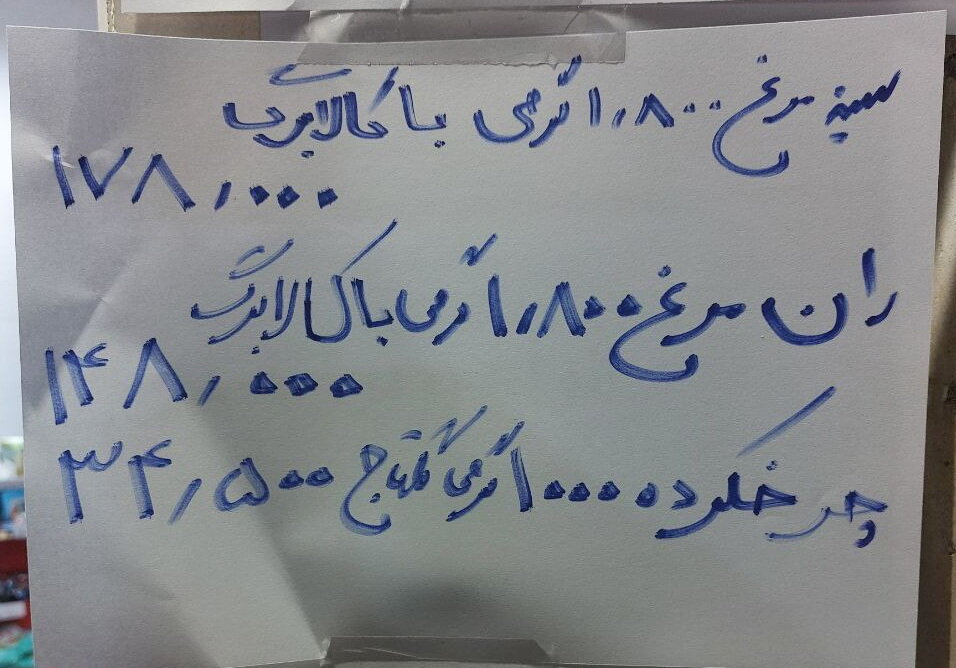 سینه مرغ ۱٫۸۰۰ گرمی با کالابرگ
۱۷۸٫۰۰۰
ران مرغ ۱٫۸۰۰ گرمی با کالابرگ
۱۴۸٫۰۰۰
چرخکرده ۱۰۰۰ گرمی مهتاج ۳۴٫۵۰۰